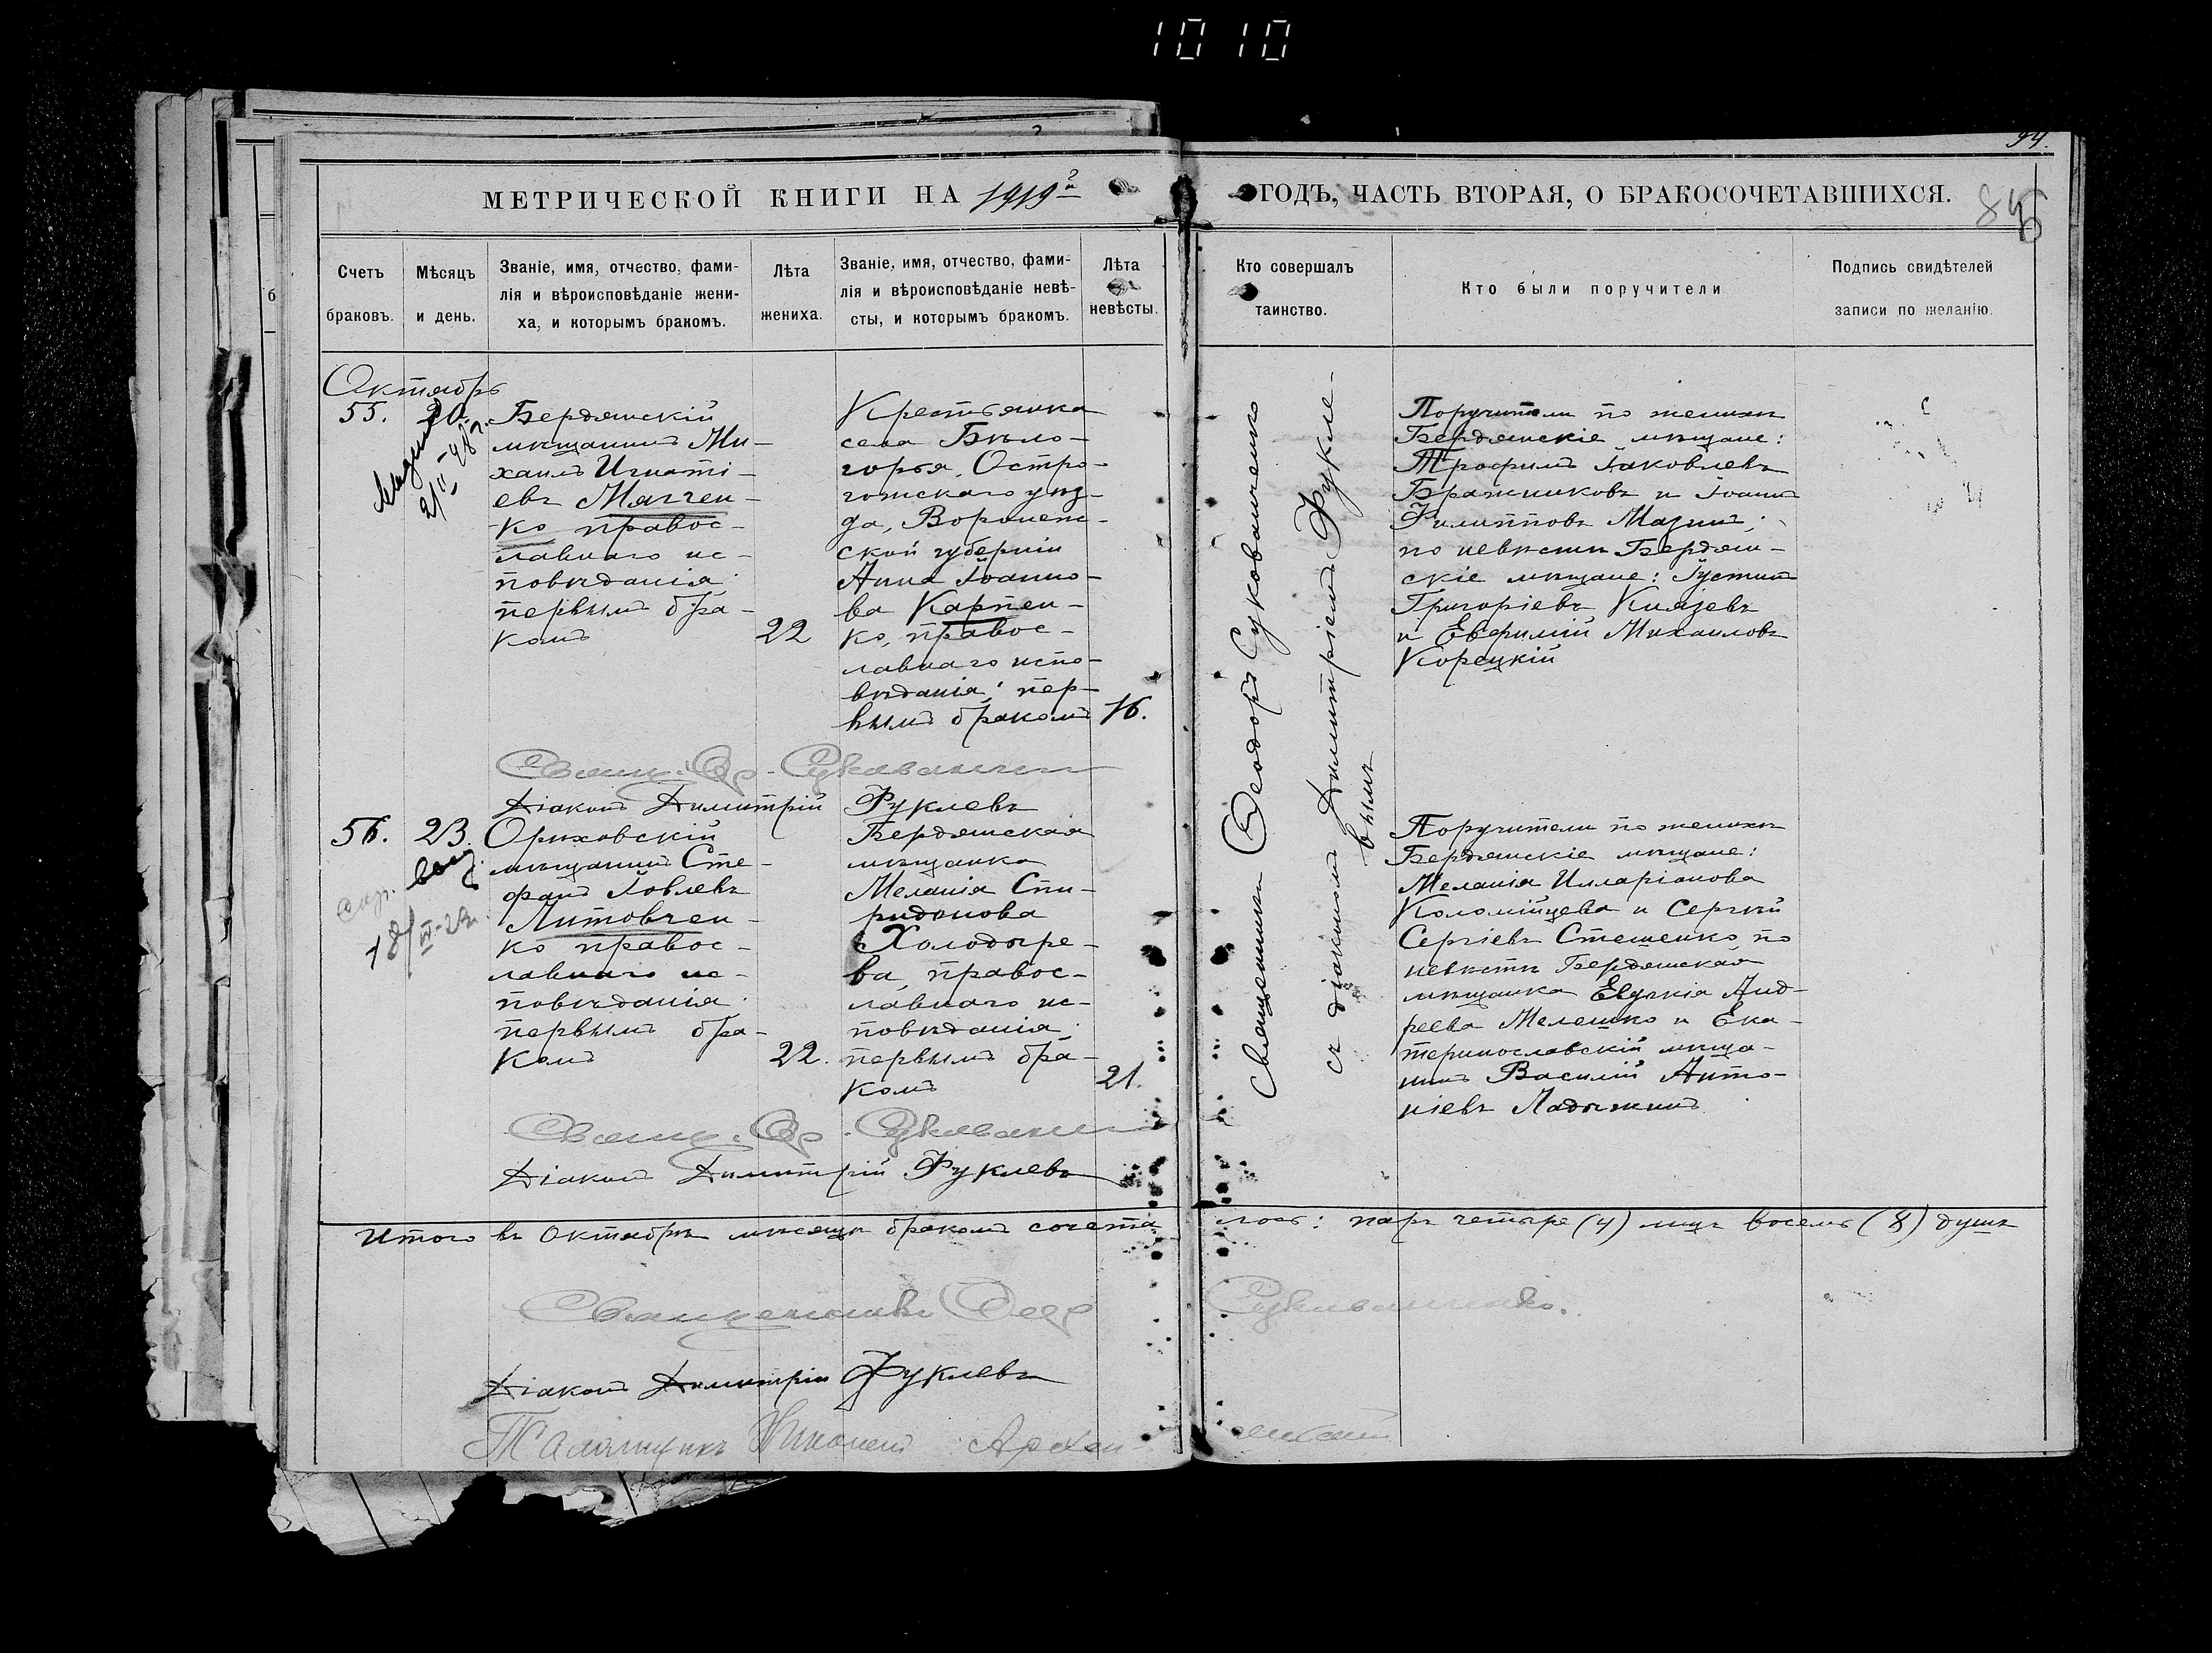 10 10
94.
МЕТРИЧЕСКОЙ КНИГИ НА 1919 г. ГОДЪ, ЧАСТЬ ВТОРАЯ, О БРАКОСОЧЕТАВШИХСЯ.
Счетъ
браковъ.
Мѣсяцъ
и день.
Званіе, имя, отчество, фами-
лія и вѣроисповѣданіе жени-
ха, и которымъ бракомъ.
Лѣта
жениха.
Званіе, имя, отчество, фами-
лія и вѣроисповѣданіе невѣ-
сты, и которымъ бракомъ.
Лѣта
невѣсты.
Кто совершалъ
таинство.
Кто были поручители
Подпись свидѣтелей
записи по желанію.
Октябрь
55.
20.
Бердянскій
мѣщанинъ Ми-
хаилъ Игнаті-
евъ Марчен-
ко правос-
лавнаго ис-
повѣданія:
первымъ бра-
комъ
22
Крестьянка
села Бѣло-
горья, Остро-
гожскаго уѣз-
да, Воронеж-
ской губерніи
Анна Іоанно-
ва Карпен-
ко, правос-
лавнаго испо-
вѣданія; пер-
вымъ бракомъ
16.
Священникъ Ѳеодоръ Сукованченко
съ діакономъ Димитріемъ Фукле-
вымъ
Поручители по женихѣ
Бердянскіе мѣщане:
Трофимъ Іаковлевъ
Бражниковъ и Іоаннъ
Филипповъ Мазинъ;
по невѣстѣ Бердян-
скіе мѣщане: Іустинъ
Григоріевъ Князевъ
и Евфимій Михаиловъ
Корецкій
Свящ. Ѳ. Сукованченко
Діаконъ Димитрій Фуклевъ
56.
23.
Орѣховскій
мѣщанинъ Сте-
фанъ Іовлевъ
Литовчен-
ко правос-
лавнаго ис-
повѣданія:
первымъ бра-
комъ
22.
Бердянская
мѣщанка
Меланія Спи-
ридонова
Холодыре-
ва, правос-
лавнаго ис-
повѣданія:
первымъ бра-
комъ
21.
Поручители по женихѣ
Бердянскіе мѣщане:
Меланія Илларіонова
Коломійцева и Сергѣй
Сергіевъ Стешенко, по
невѣстѣ Бердянская
мѣщанка Евдокія Анд-
реева Мелешко и Ека-
теринославскій мѣща-
нинъ Василій Анто-
ніевъ Ладыжинъ
Свящ. Ѳ. Сукованченко
Діаконъ Димитрій Фуклевъ
Итого въ Октябрѣ мѣсяцѣ бракомъ сочета- лось: паръ четыре (4) лицъ восемь (8) душъ
Священникъ Ѳеодоръ Сукованченко.
Діаконъ Димитрій Фуклевъ